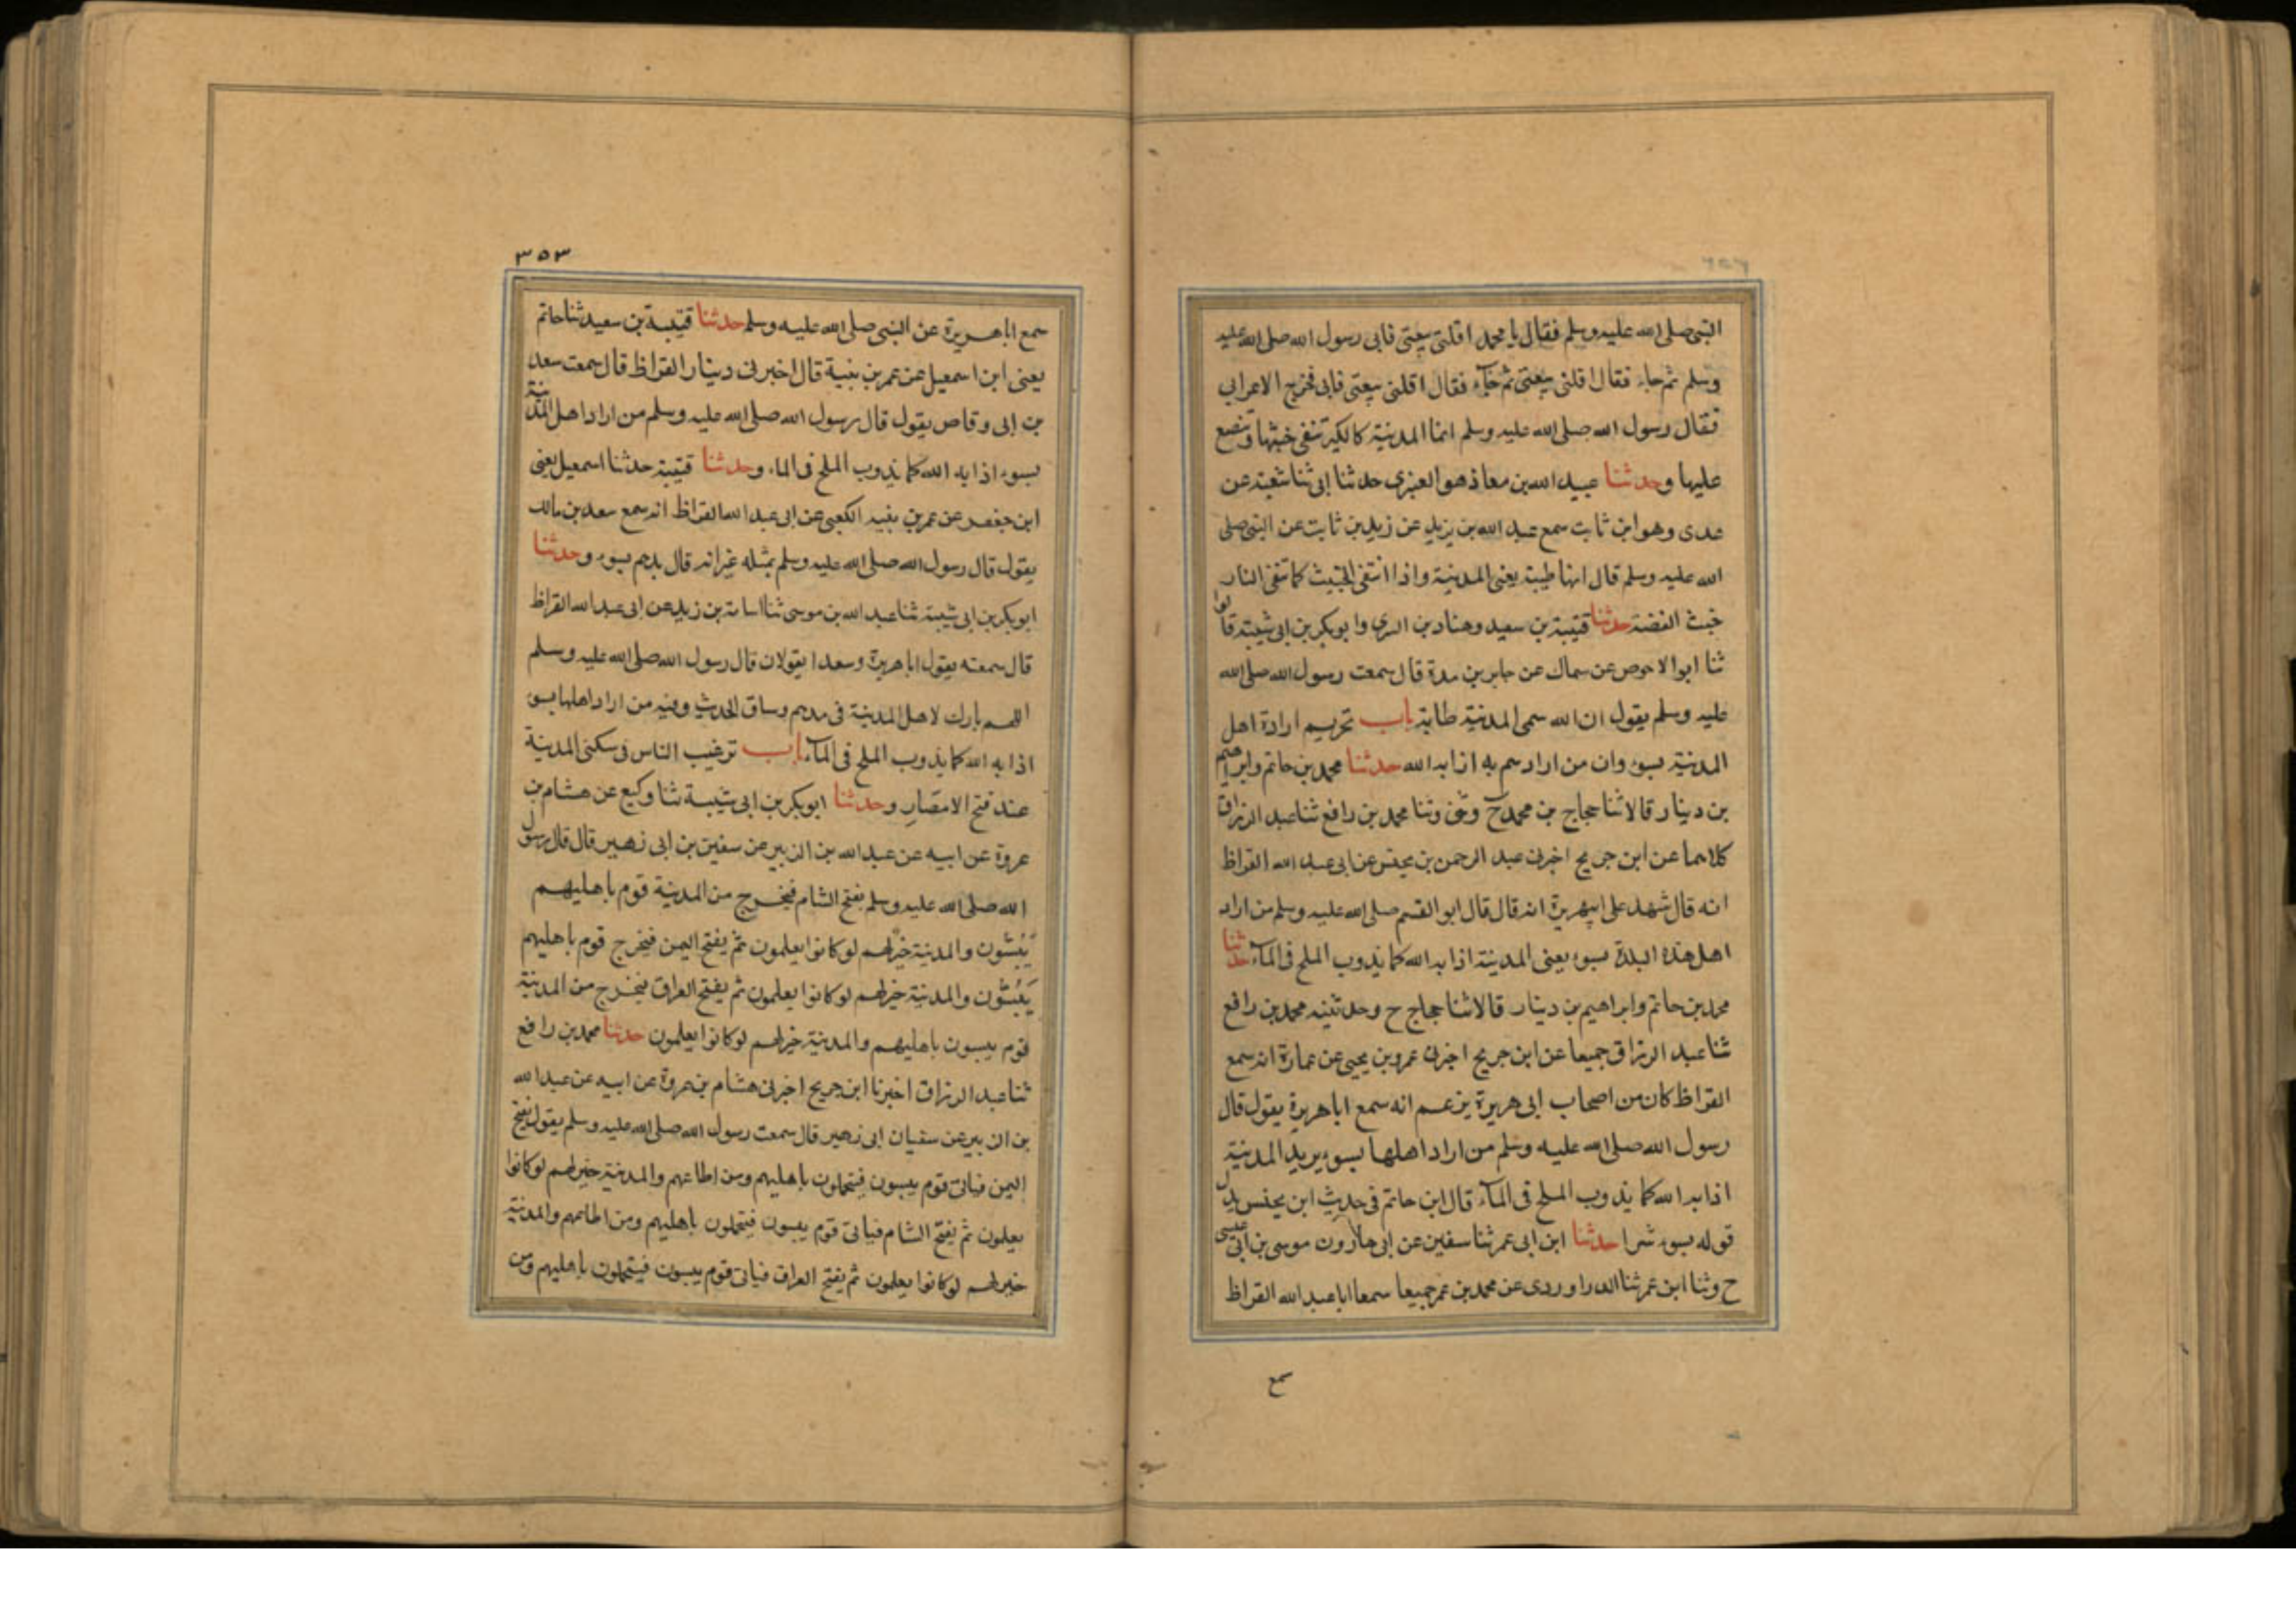 النبى صلى الله عليه وسلم فقال يا محمد اقلنى بيعتى فابى رسول الله صلى الله عليه
وسلم ثم جاء فقال اقلنى بيعتى ثم جآء فقال اقلنى بيعتى فابى فخرج الاعرابى
فقال رسول الله صلى الله عليه وسلم انما المدينة كالكير تنفى خبثها وتنصع
عليها وحدثنا عبيد الله بن معاذ هو العنبرى حدثنا ابى ثنا شعبة عن
عدى وهو ابن ثابت سمع عبد الله بن يزيد عن زيد بن ثابت عن النبى صلى
الله عليه وسلم قال انها طيبة يعنى المدينة واذا انتفى الخبيث كما تنفى النار
خبث الفضة حدثنا قتيبة بن سعيد وهناد بن السرى وابو بكر بن ابى شيبة قالوا
ثنا ابو الاحوص عن سماك عن جابر بن مدة قال سمعت رسول الله صلى الله
عليه وسلم يقول ان الله سمى المدينة طابة باب تحريم ارادة اهل
المدينة بسوء وان من ارادهم به اذابه الله حدثنا محمد بن حاتم وابراهيم
بن دينار قالا ثنا حجاج بن محمد ح وثنى وثنا محمد بن رافع ثنا عبد الرزاق
كلاهما عن ابن جريج اخبرنى عبد الرحمن بن يحنس عن ابى عبد الله القراظ
انه قال شهد على ابيهريرة انه قال قال ابو القسم صلى الله عليه وسلم من اراد
اهل هذه البلدة بسوء يعنى المدينة اذابه الله كما يذوب الملح فى المآء حدثنا
محمد بن حاتم وابراهيم بن دينار قالا ثنا حجاج ح وحدثنيه محمد بن رافع
ثنا عبد الرزاق جميعا عن ابن جريج اخبرنى عمرو بن يحيى عن عمارة انه سمع
القراظ كان من اصحاب ابى هريرة يزعم انه سمع ابا هريرة يقول قال
رسول الله صلى الله عليه وسلم من اراد اهلها بسوء يريد المدينة
اذابه الله كما يذوب الملح فى المآء قال ابن حاتم فى حديث ابن يحنس بدل
قوله بسوء شرا حدثنا ابن ابى عمر ثنا سفين عن ابى هارون موسى بن ابى عيسى
ح وثنا ابن عمر ثنا الدراوردى عن محمد بن عمر جميعا سمعا ابا عبد الله القراظ
سمع
٣٥٣
سمع ابا هريرة عن النبى صلى الله عليه وسلم حدثنا قتيبة بن سعيد ثنا حاتم
يعنى ابن اسمعيل عن عمر بن نبية قال اخبرنى دينار القراظ قال سمعت سعد
بن ابى وقاص يقول قال رسول الله صلى الله عليه وسلم من اراد اهل المدينة
بسوء اذابه الله كما يذوب الملح فى الماء وحدثنا قتيبة حدثنا اسمعيل يعنى
ابن جعفر عن عمر بن نبيه الكعبى عن ابى عبد الله القراظ انه سمع سعد بن مالك
يقول قال رسول الله صلى الله عليه وسلم بمثله غير انه قال بدهم بسوء وحدثنا
ابو بكر بن ابى شيبة ثنا عبد الله بن موسى ثنا اسامة بن زيد عن ابى عبد الله القراظ
قال سمعته يقول ابا هريرة وسعدا يقولان قال رسول الله صلى الله عليه وسلم
اللهم بارك لاهل المدينة فى مدهم وساق الحديث وفيه من اراد اهلها بسوء
اذابه الله كما يذوب الملح فى المآء باب ترغيب الناس فى سكنى المدينة
عند فتح الامصار وحدثنا ابو بكر بن ابى شيبة ثنا وكيع عن هشام بن
عروة عن ابيه عن عبد الله بن الزبير عن سفين بن ابى زهير قال قال رسول
الله صلى الله عليه وسلم تفتح الشام فيخرج من المدينة قوم باهليهم
يَبُسّون والمدينة خير لهم لو كانوا يعلمون ثم يفتح اليمن فيخرج قوم باهليهم
يَبُسّون والمدينة خير لهم لو كانوا يعلمون ثم يفتح العراق فيخرج من المدينة
قوم يبسون باهليهم والمدينة خير لهم لو كانوا يعلمون حدثنا محمد بن رافع
ثنا عبد الرزاق اخبرنا ابن جريج اخبرنى هشام بن عروة عن ابيه عن عبد الله
بن الزبير عن سفيان ابى زهير قال سمعت رسول الله صلى الله عليه وسلم يقول يفتح
اليمن فياتى قوم يبسون فيتحملون باهليهم ومن اطاعهم والمدينة خير لهم لو كانوا
يعلمون ثم يفتح الشام فياتى قوم يبسون فيتحملون باهليهم ومن اطاعهم والمدينة
خير لهم لو كانوا يعلمون ثم يفتح العراق فياتى قوم يبسون فيتحملون باهليهم ومن